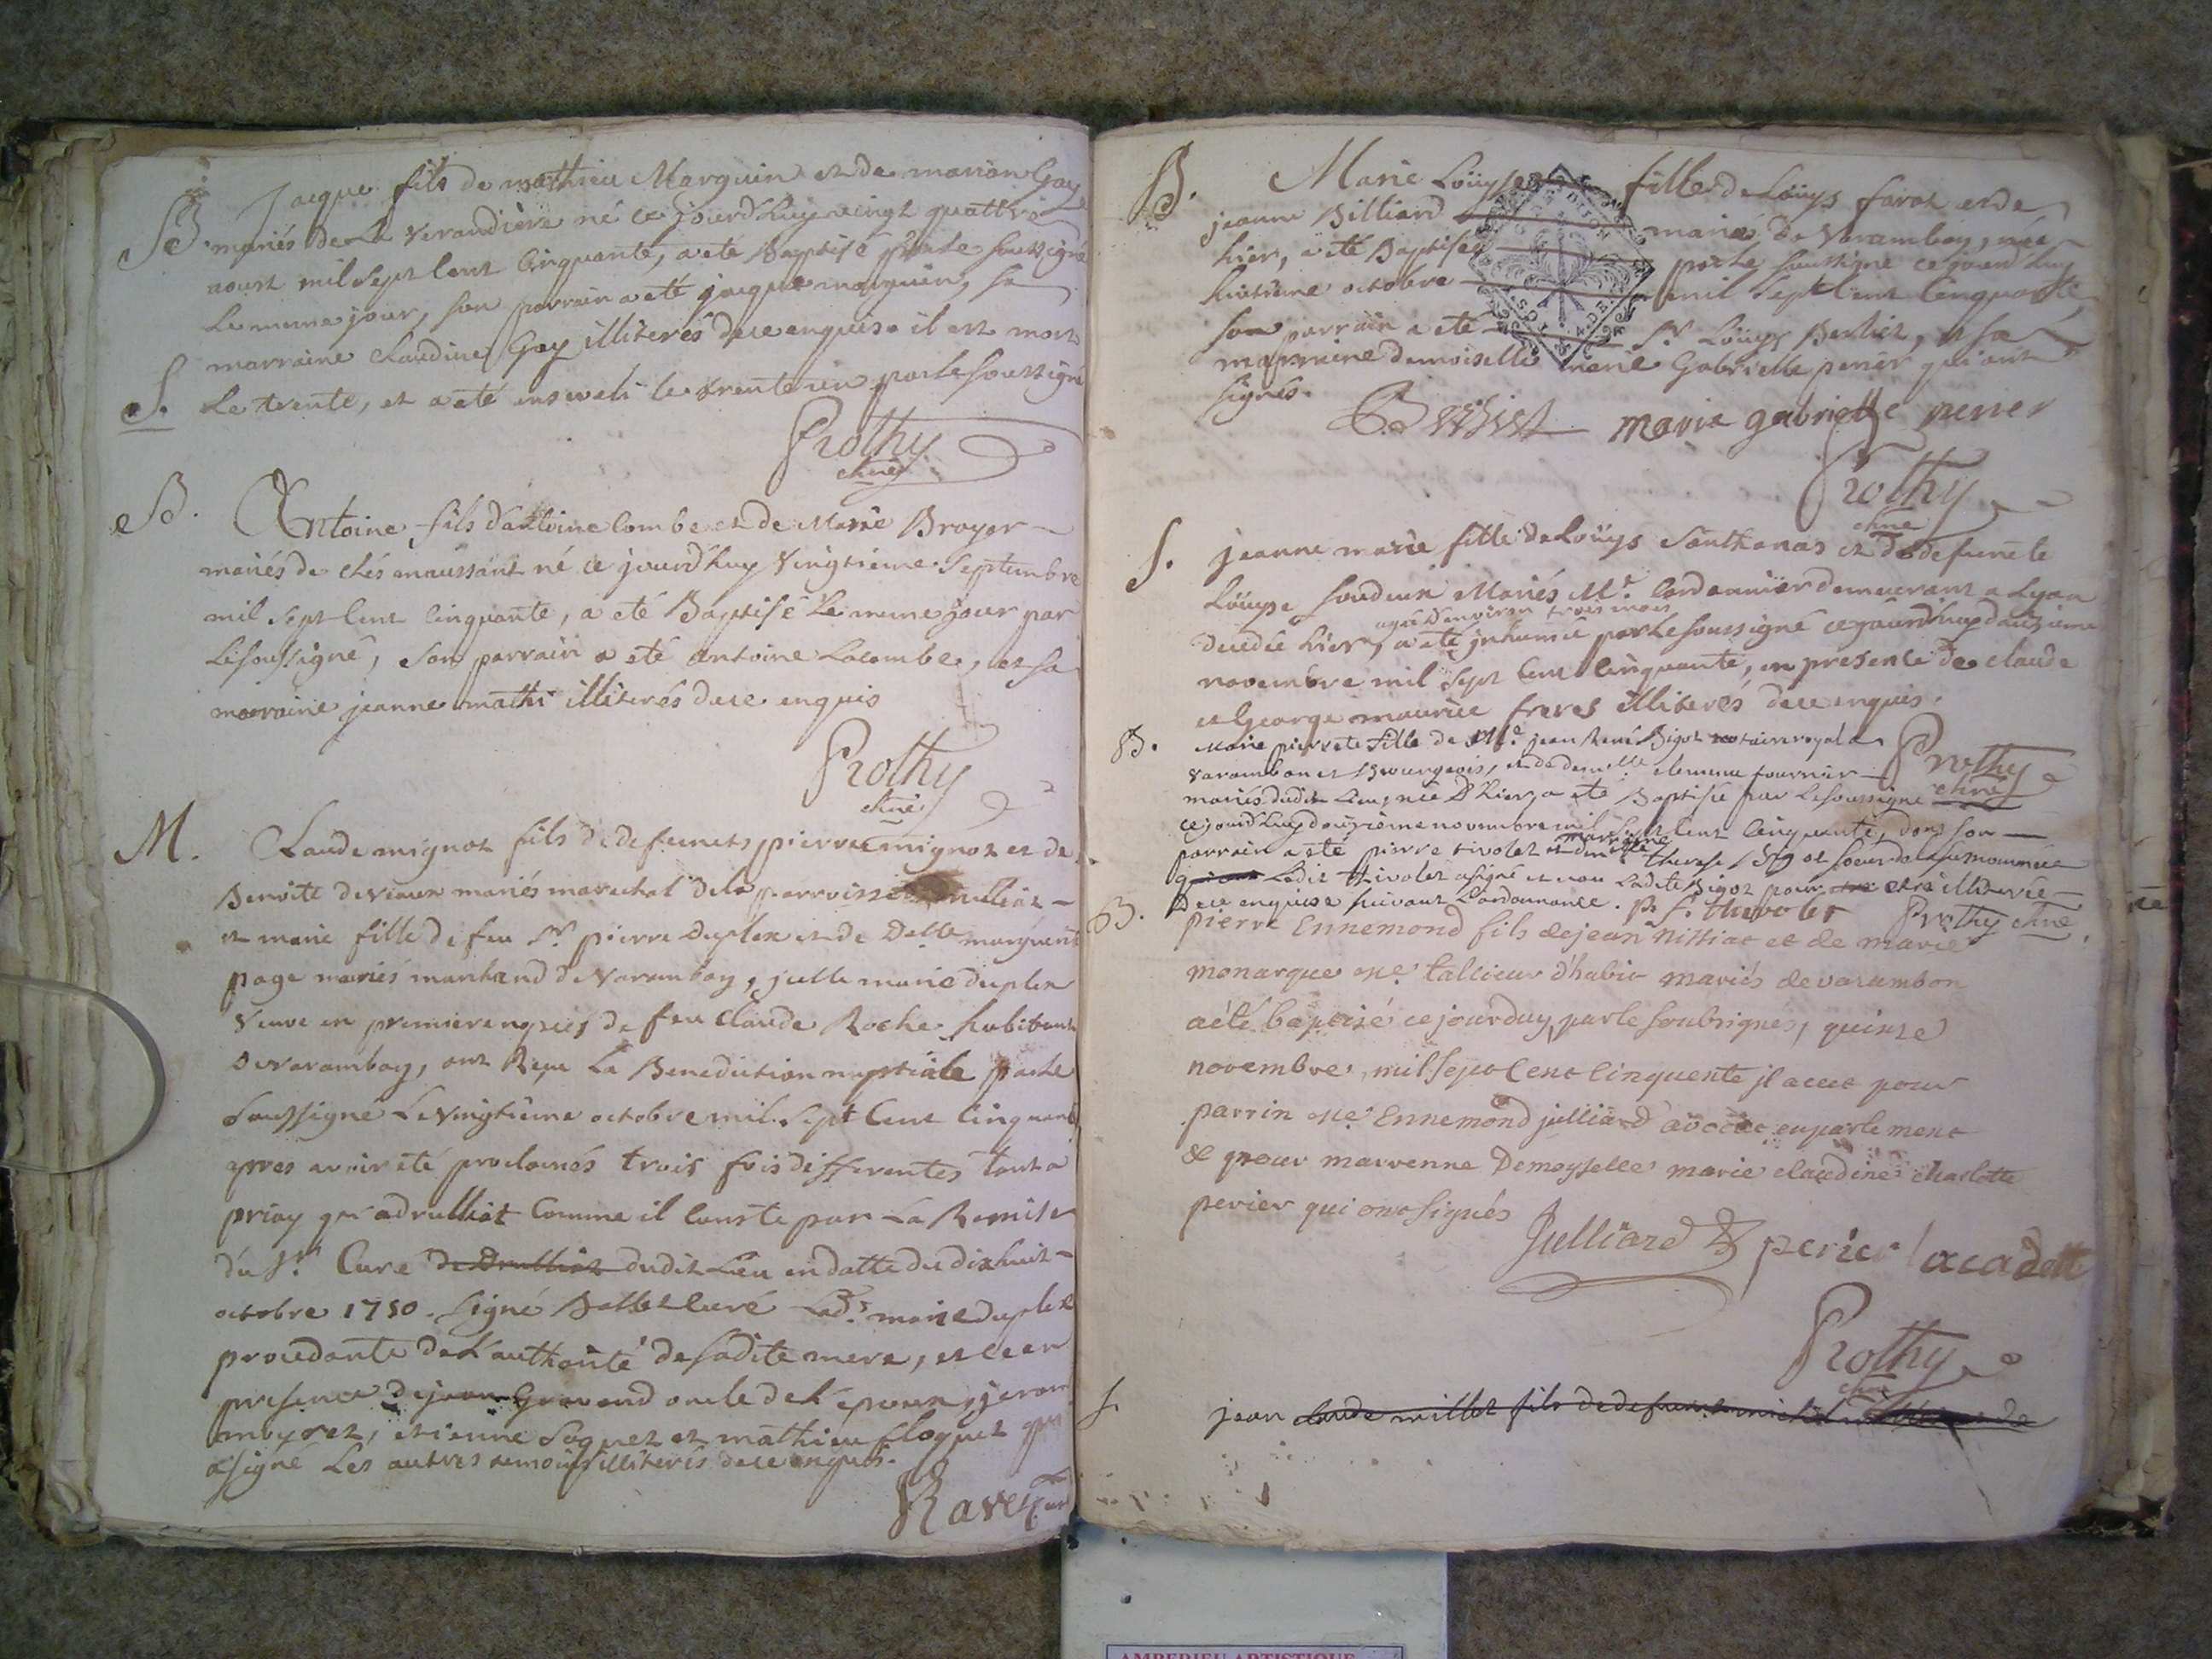 B. Jacque fils de mathieu Marguin et de marian Gay
mariés de La Verandiere né ce jourd'huy vingt quattre
aoust mil sept cent cinquante, a été Baptisé par le soussigné
le meme jour, son parrain a eté jacque marguin, sa
marraine claudine Gay illiterés de ce enquise il est mort
S. le trente, et a eté enseveli le trente un par le soussigné
Prothy
chne
B. Antoine fils d'antoine Combe et de Marie Broyer
mariés de chés maussant né ce jourd'huy Vingtieme Septembre
mil sept cent cinquante, a eté Baptisé le meme jour par
le soussigné, son parrain a eté antoine Lacombe, et sa
marraine jeanne mathi illiterés de ce enquis
Prothy
chne
M. Claude mignot fils de defunets pierre mignot et de
Benoite deviaux mariés marechal de la parroisse
et marie fille de feu Sr. pierre Duplex et de Delle marguerit
page mariés marchand de Varambon, jcelle marie duplex
veuve en premiere nopces de feu claude Roche habitants
de varambon, ont Reçu La Benediction nuptiale par le
soussigné Le Vingtieme octobre mil sept cent cinquante
apres avoir été proclamés trois fois differentes tant a
priay qu'a drulliat comme il conste par La Remise
du Sr. Curé de Drulliat dudit Lieu en datte du dixhuit
octobre 1750. signé Ballet curé Lade. marie duplex
procedante de L'authorité de sadite mere, et ce en
presence de jean Gravand oncle de L'epoux, jerom
meyret, etienne Soquet et mathieu floquet qui
a signé Les autres temoins illiterés de ce enquis.
Ravet curé
B. Marie Loüyse fille de Loüys farot et de
jeanne Billiard mariés de Varambon, née
hier, a eté Baptisée par le soussigné ce jourd'huy
huitieme octobre mil sept cent cinquante
son parrain a eté Sr. Loüys Berliet, et sa
marraine demoiselle marie Gabrielle perier qui ont
signés.
Berliet marie gabrielle perier
Prothy
chne
S. jeanne marie fille de Loüys Santhonas et de defuncte
Loüyse Mariés Me. Cordonnier demeurant a Lyon
agée d'environ trois mois
decedée hier, a eté jnhumée par le soussigné ce jourd'huy douzieme
novembre mil sept cent cinquante, en presence de claude
et George maurice freres illiterés de ce enquis.
B. Marie pierrete fille de Me. jean René Bigot notaire royal a
varambon et Bourgeois, et de demelle. clemence fournier
Prothy
chne
mariés dudit Lieu, née d'hier, a eté Baptisée par le soussigné
ce jourd'huy douzieme novembre mil sept cent cinquante, dont son
marraine
parrain a eté pierre tivolet et demelle therese Bigot soeur de la surnommée
qui ont Ledit tivolet a signé et non Ladite Bigot pour etre illiterée
de ce enquise suivant L'ordonnance. p. f. thivolet Prothy chne
B. pierre Ennemond fils de jean nittiat et de marie
monarque Me. tallieur d'habit mariés de varambon
a été baptisé ce jourduy parle soubsignés, quinze
novembre mil sept cent cinquente jl a eut pour
parrin Me. Ennemond julliard avocat en parlement
& pour marrenne Demoyselle marie claudine charlotte
perier qui ont signés
Julliard perier lacadette
Prothy
chne
S. jean claude millet fils de defunt de
AMBERIEU ARTISTIQUE